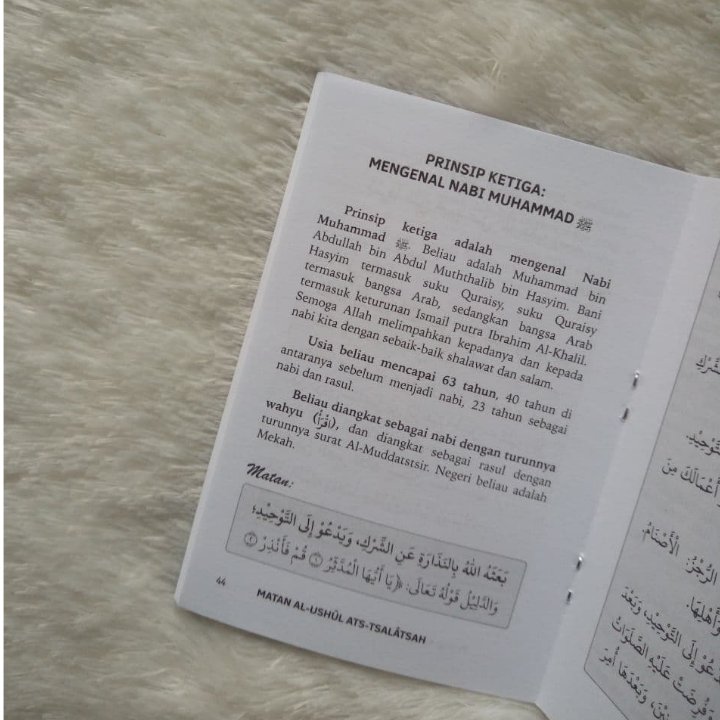 PRINSIP KETIGA:
MENGENAL NABI MUHAMMAD ﷺ
Prinsip ketiga adalah mengenal Nabi
Muhammad ﷺ. Beliau adalah Muhammad bin
Abdullah bin Abdul Muththalib bin Hasyim. Bani
Hasyim termasuk suku Quraisy, suku Quraisy
termasuk bangsa Arab, sedangkan bangsa Arab
termasuk keturunan Ismail putra Ibrahim Al-Khalil.
Semoga Allah melimpahkan kepadanya dan kepada
nabi kita dengan sebaik-baik shalawat dan salam.
Usia beliau mencapai 63 tahun, 40 tahun di
antaranya sebelum menjadi nabi, 23 tahun sebagai
nabi dan rasul.
Beliau diangkat sebagai nabi dengan turunnya
wahyu (اقْرَأْ), dan diangkat sebagai rasul dengan
turunnya surat Al-Muddatstsir. Negeri beliau adalah
Mekah.
Matan:
بَعَثَهُ اللهُ بِالنِّذَارَةِ عَنِ الشِّرْكِ، وَيَدْعُوْ إِلَى التَّوْحِيْدِ؛
وَالدَّلِيْلُ قَوْلُهُ تَعَالَى: ﴿يَا أَيُّهَا الْمُدَّثِّرُ ۝١ قُمْ فَأَنْذِرْ ۝٢
44
MATAN AL-USHÛL ATS-TSALÂTSAH
الشِّرْكِ
التَّوْحِيْدِ.
أَعْمَالَكَ مِنَ
الرُّجْزُ: الْأَصْنَامُ.
وَأَهْلِهَا.
إِلَى التَّوْحِيْدِ، وَبَعْدَ
وَفُرِضَتْ عَلَيْهِ الصَّلَوَاتُ
وَبَعْدَهَا أُمِرَ